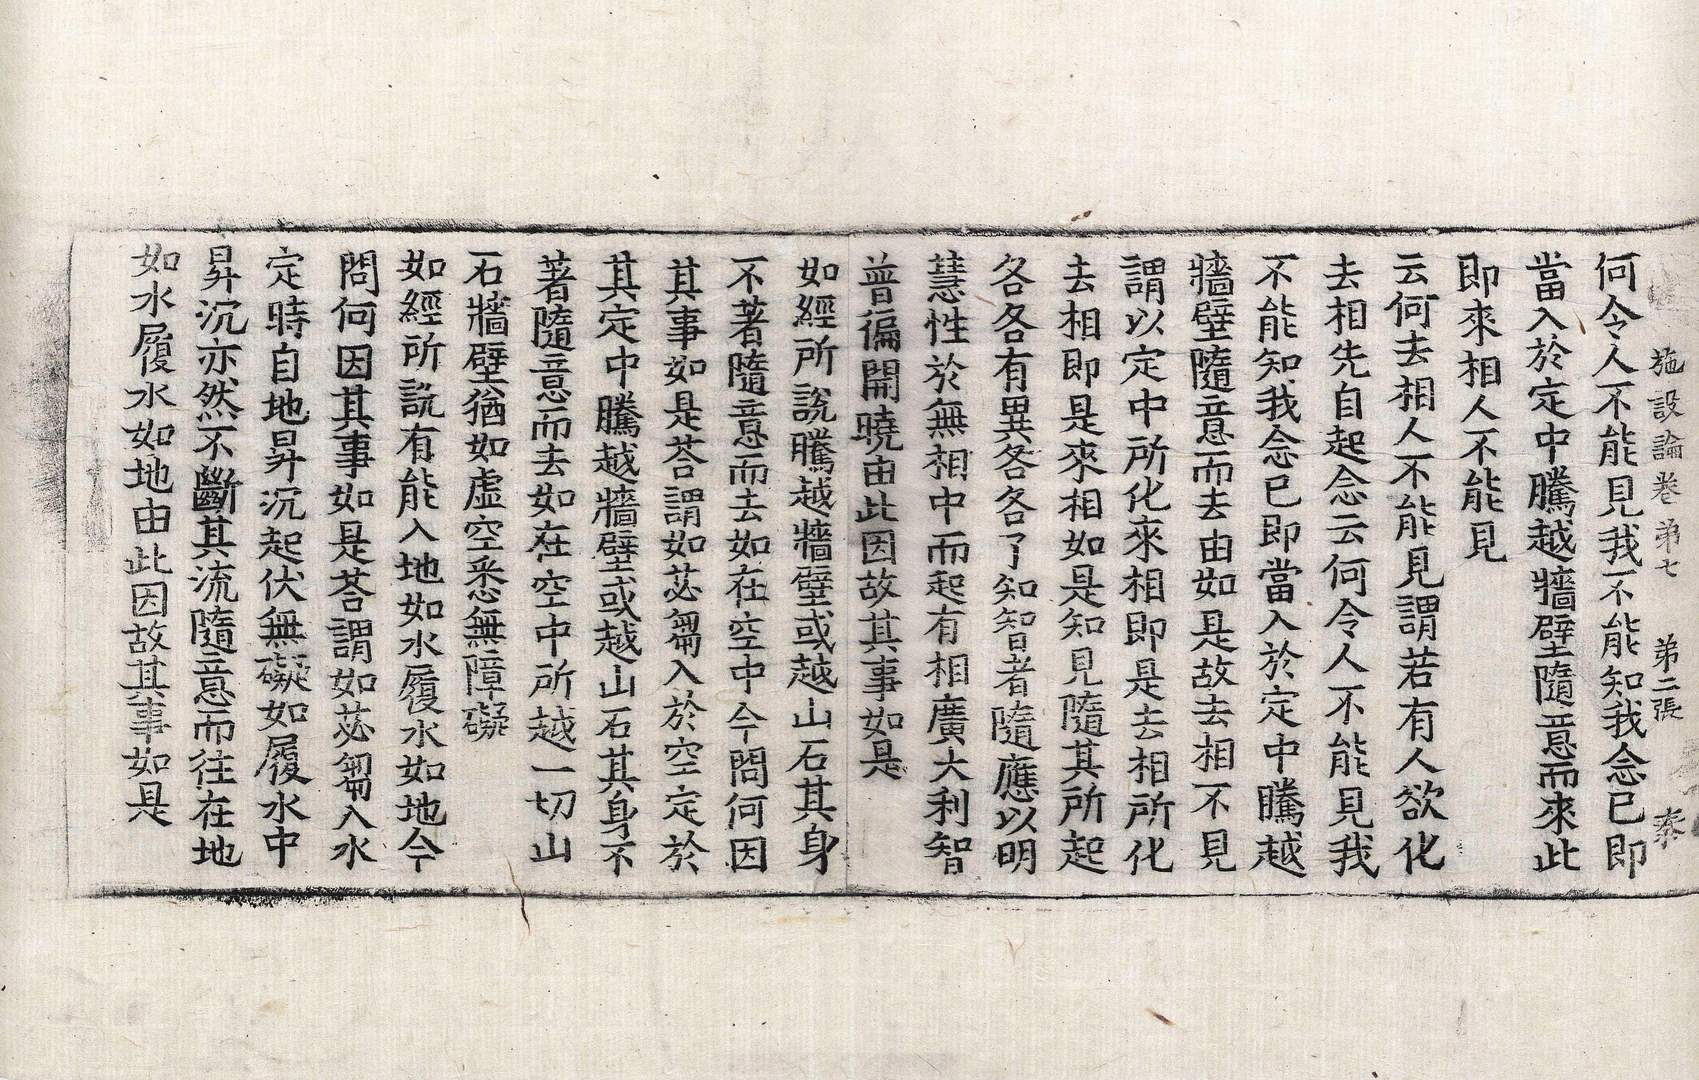 施設論卷第七　第二張　泰
何令人不能見我不能知我念已即
當入於定中騰越牆壁隨意而來此
即來相人不能見
云何去相人不能見謂若有人欲化
去相先自起念云何令人不能見我
不能知我念已即當入於定中騰越
牆壁隨意而去由如是故去相不見
謂以定中所化來相即是去相所化
去相即是來相如是知見隨其所起
各各有異各各了知智者隨應以明
慧性於無相中而起有相廣大利智
普徧開曉由此因故其事如是
如經所說騰越牆壁或越山石其身
不著隨意而去如在空中今問何因
其事如是荅謂如苾芻入於空定於
其定中騰越牆壁或越山石其身不
著隨意而去如在空中所越一切山
石牆壁猶如虛空悉無障礙
如經所說有能入地如水履水如地今
問何因其事如是荅謂如苾芻入水
定時自地昇沉起伏無礙如履水中
昇沉亦然不斷其流隨意而往在地
如水履水如地由此因故其事如是